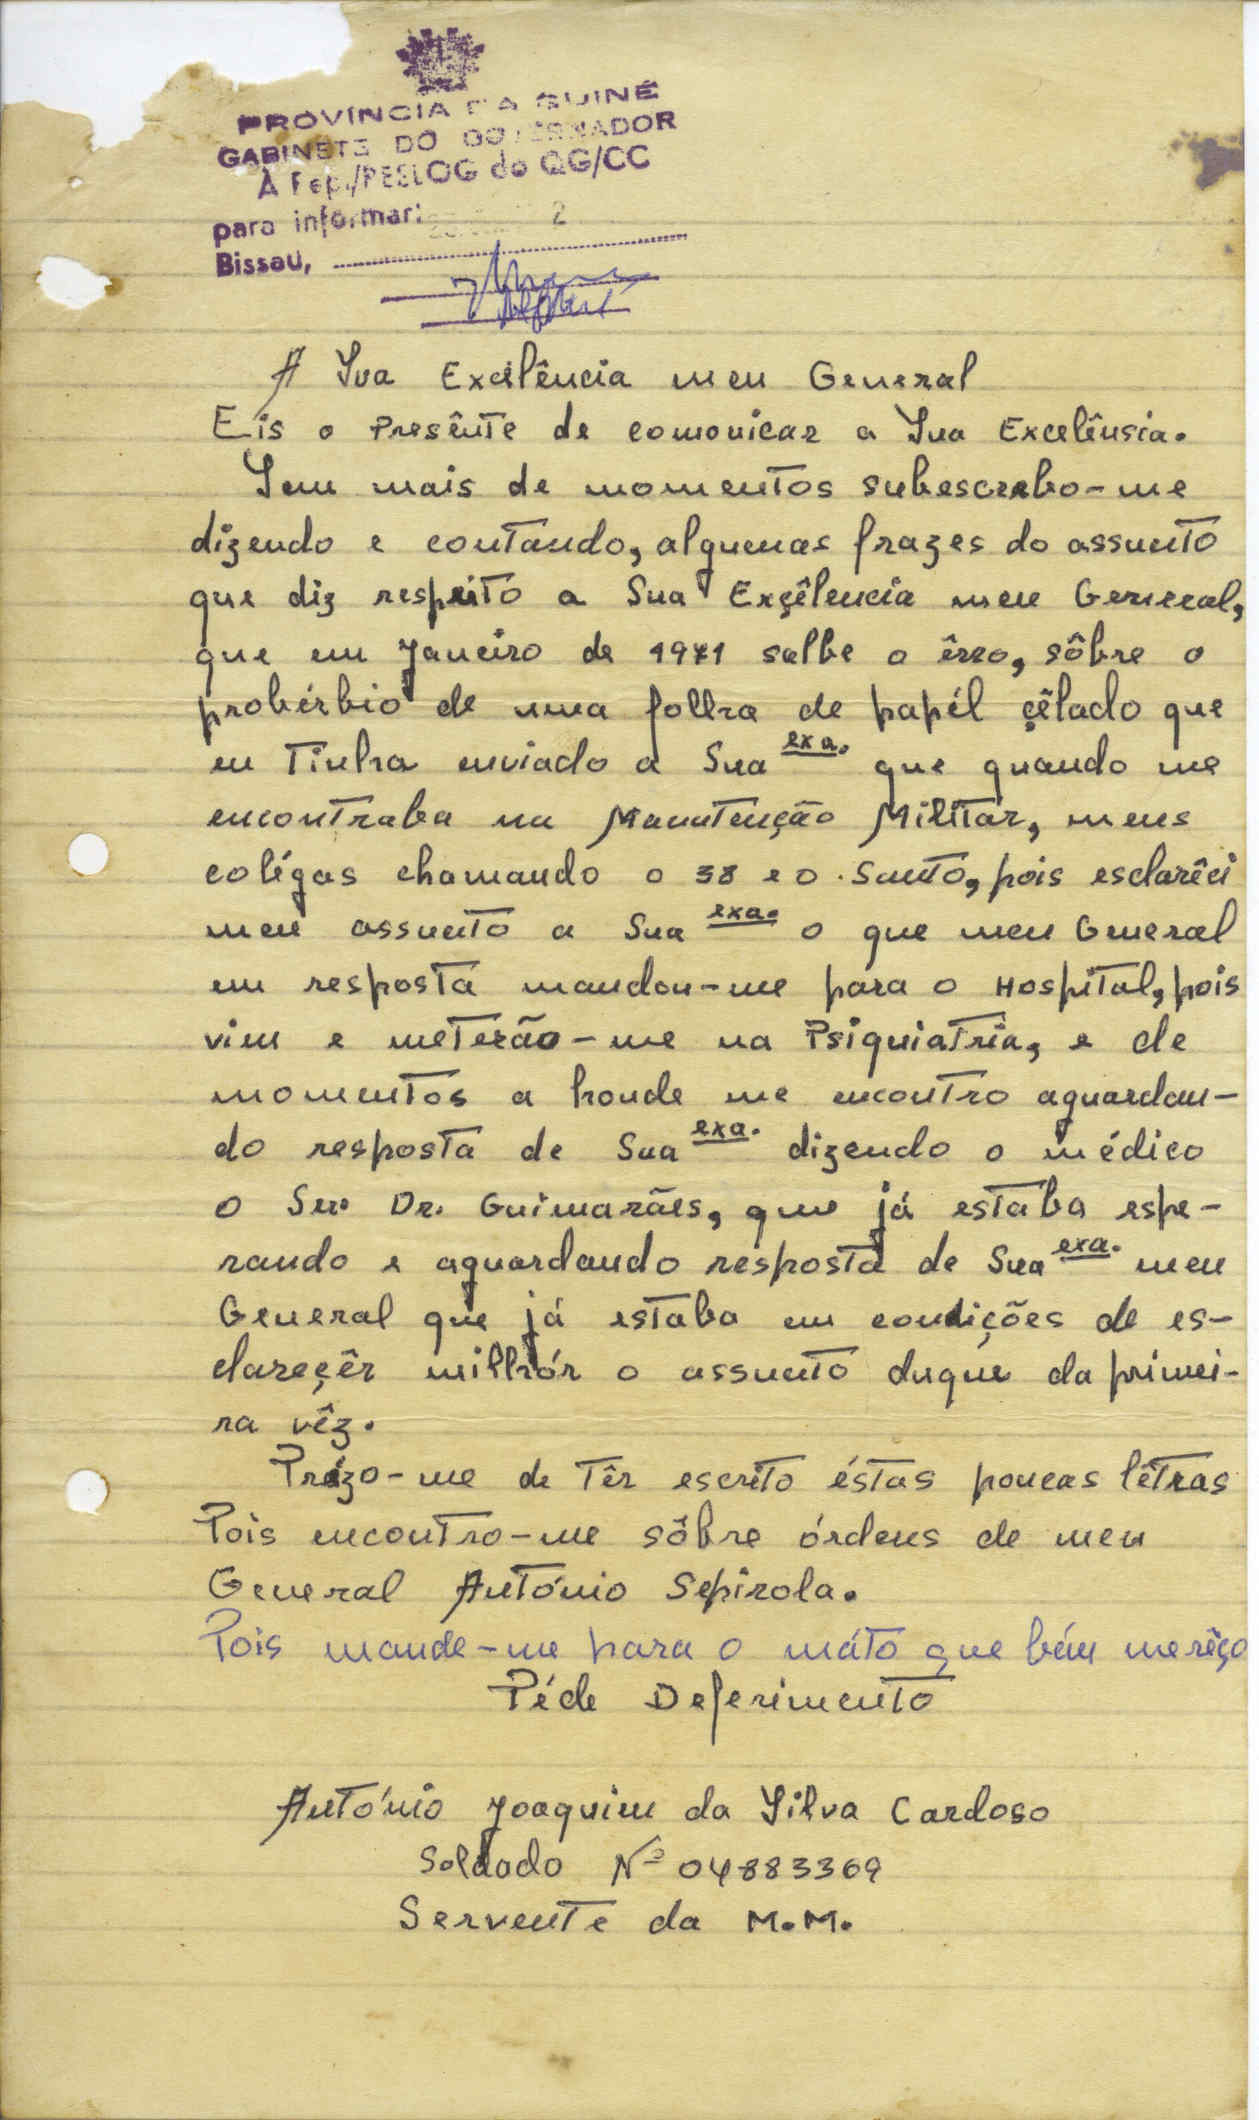 PROVÍNCIA DA GUINÉ
GABINETE DO GOVERNADOR
À Rep./PESLOG do QG/CC
para informar:
Bissau,
A Sua Excelência meu General
Eis o Presênte de comonicar a Sua Excelênsia.
Sem mais de momentos subescrebo-me
dizendo e contando, alguemas frazes do assunto
que diz respeito a Sua Exçêlencia meu General,
que em Janeiro de 1971 salbe o êrro, sôbre o
probérbio de uma folha de papél çêlado que
eu Tinha enviado a Sua exa. que quando me
encontraba na Manutenção Militar, meus
colégas chamando o 38 e o Santo, pois esclarêci
meu assunto a Sua exa. o que meu General
em resposta mandou-me para o Hospital, pois
vim e meterão-me na Psiquiatria, e de
momentos a honde me encontro aguardan-
do resposta de Sua exa. dizendo o médico
o Snr. Dr. Guimarães, que já estaba espe-
rando e aguardando resposta de Sua exa. meu
General que já estaba em condições de es-
clareçêr milhór o assunto duque da primei-
ra vêz.
Prázo-me de Têr escrito éstas poucas lêtras
Pois encontro-me sôbre órdens de meu
General António Sepirola.
Pois mande-me para o máto que bém merêço
Péde Deferimento
António Joaquim da Silva Cardoso
Soldado Nº 04883369
Servente da M.M.